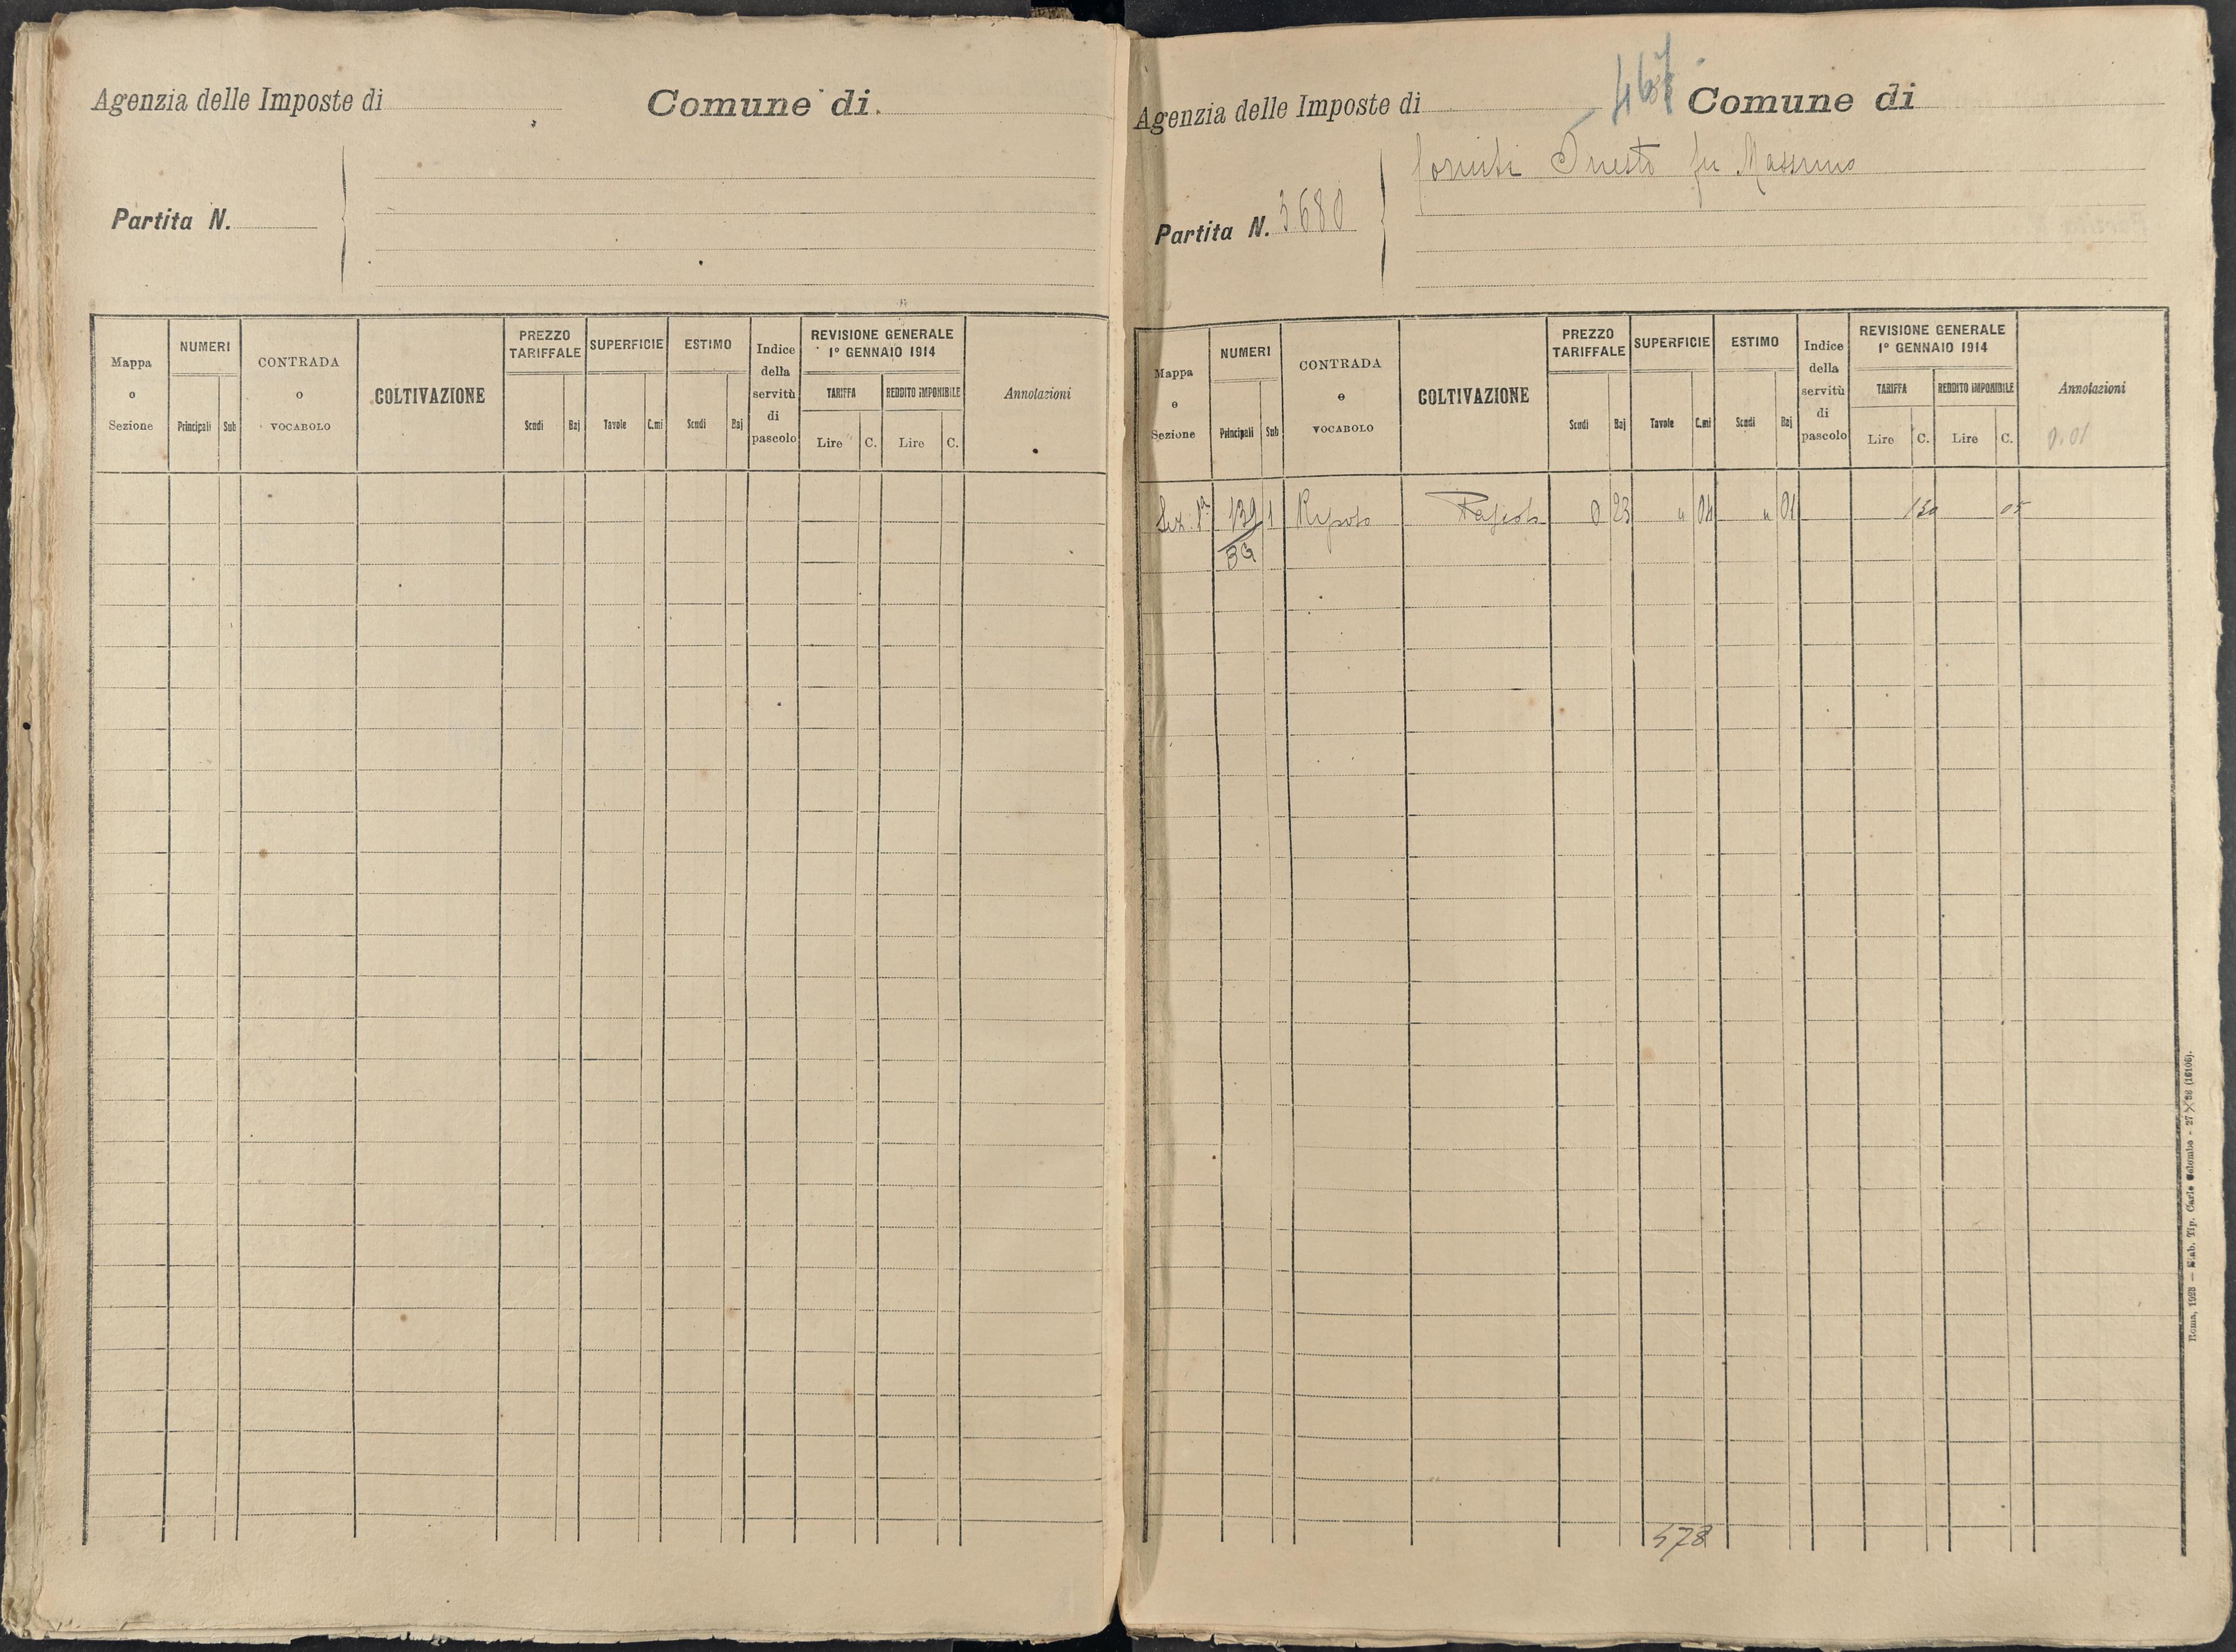 Agenzia delle Imposte di Comune di
Partita N.
Mappa e Sezione
NUMERI
Principali Sub
CONTRADA o VOCABOLO
COLTIVAZIONE
PREZZO TARIFFALE
Scudi Baj
SUPERFICIE
Tavole C.mi
ESTIMO
Scudi Baj
Indice della servitù di pascolo
REVISIONE GENERALE
1° GENNAIO 1914
TARIFFA REDDITO IMPONIBILE
Lire C. Lire C.
Annotazioni
467
Agenzia delle Imposte di Comune di
fu Massimo
Partita N. 3680
Mappa e Sezione
NUMERI
Principali Sub
CONTRADA o VOCABOLO
COLTIVAZIONE
PREZZO TARIFFALE
Scudi Baj
SUPERFICIE
Tavole C.mi
ESTIMO
Scudi Baj
Indice della servitù di pascolo
REVISIONE GENERALE
1° GENNAIO 1914
TARIFFA REDDITO IMPONIBILE
Lire C. Lire C.
Annotazioni
0.01
Sez. 1a 139 1 0 23 " 04 " 01 130 05
578
Roma, 1923 — Stab. Tip. Carlo Colombo